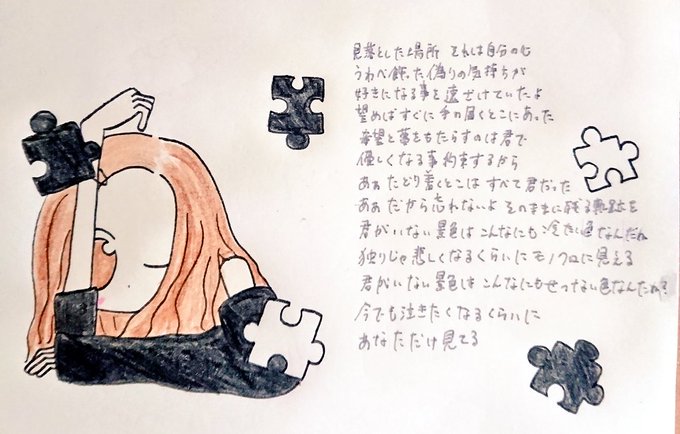 見落とした場所 それは自分の心
うわべ飾った偽りの気持ちが
好きになる事を遠ざけていたよ
望めばすぐに手の届くとこにあった
希望と夢をもたらすのは君で
優しくなる事約束するから
あぁ たどり着くとこは すべて君だった
あぁ だから忘れないよ そのままに残る軌跡を
君がいない景色は こんなにも冷たい色なんだね
独りじゃ悲しくなるくらいに モノクロに見える
君がいない景色は こんなにもせつない色なんだね?
今でも泣きたくなるくらいに
あなただけ見てる